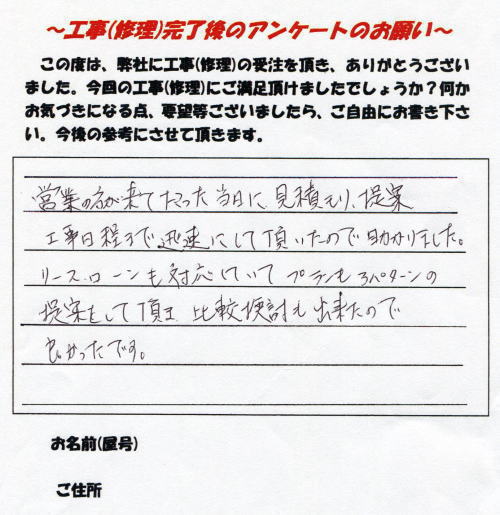 ～工事(修理)完了後のアンケートのお願い～
この度は、弊社に工事(修理)の受注を頂き、ありがとうござい
ました。今回の工事(修理)にご満足頂けましたでしょうか？何か
お気づきになる点、要望等ございましたら、ご自由にお書き下さ
い。今後の参考にさせて頂きます。
営業の方が来て下さった当日に、見積もり、提案
工事日程まで迅速にして頂いたので助かりました。
リース、ローンも対応していて プランも 3パターンの
提案をして頂き 比較検討も出来たので
良かったです。
お名前(屋号)
ご住所